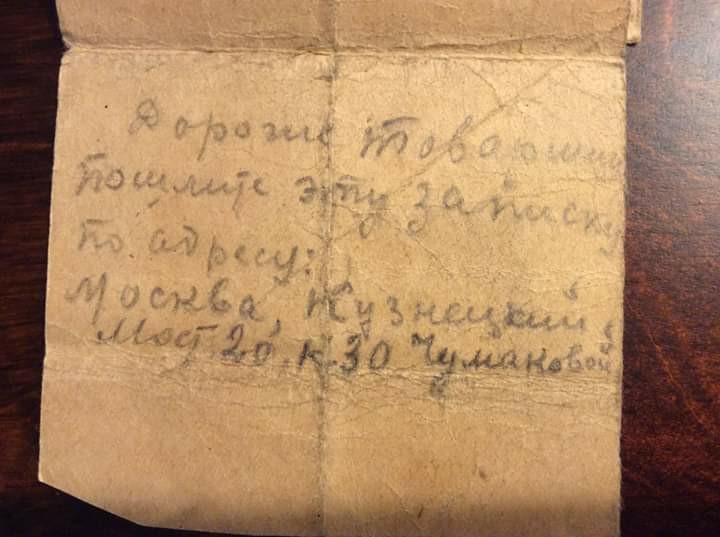 Дорогие товарищи
пошлите эту записку
по адресу:
Москва, Кузнецкий
Мост 20, к.30 Чумаковой